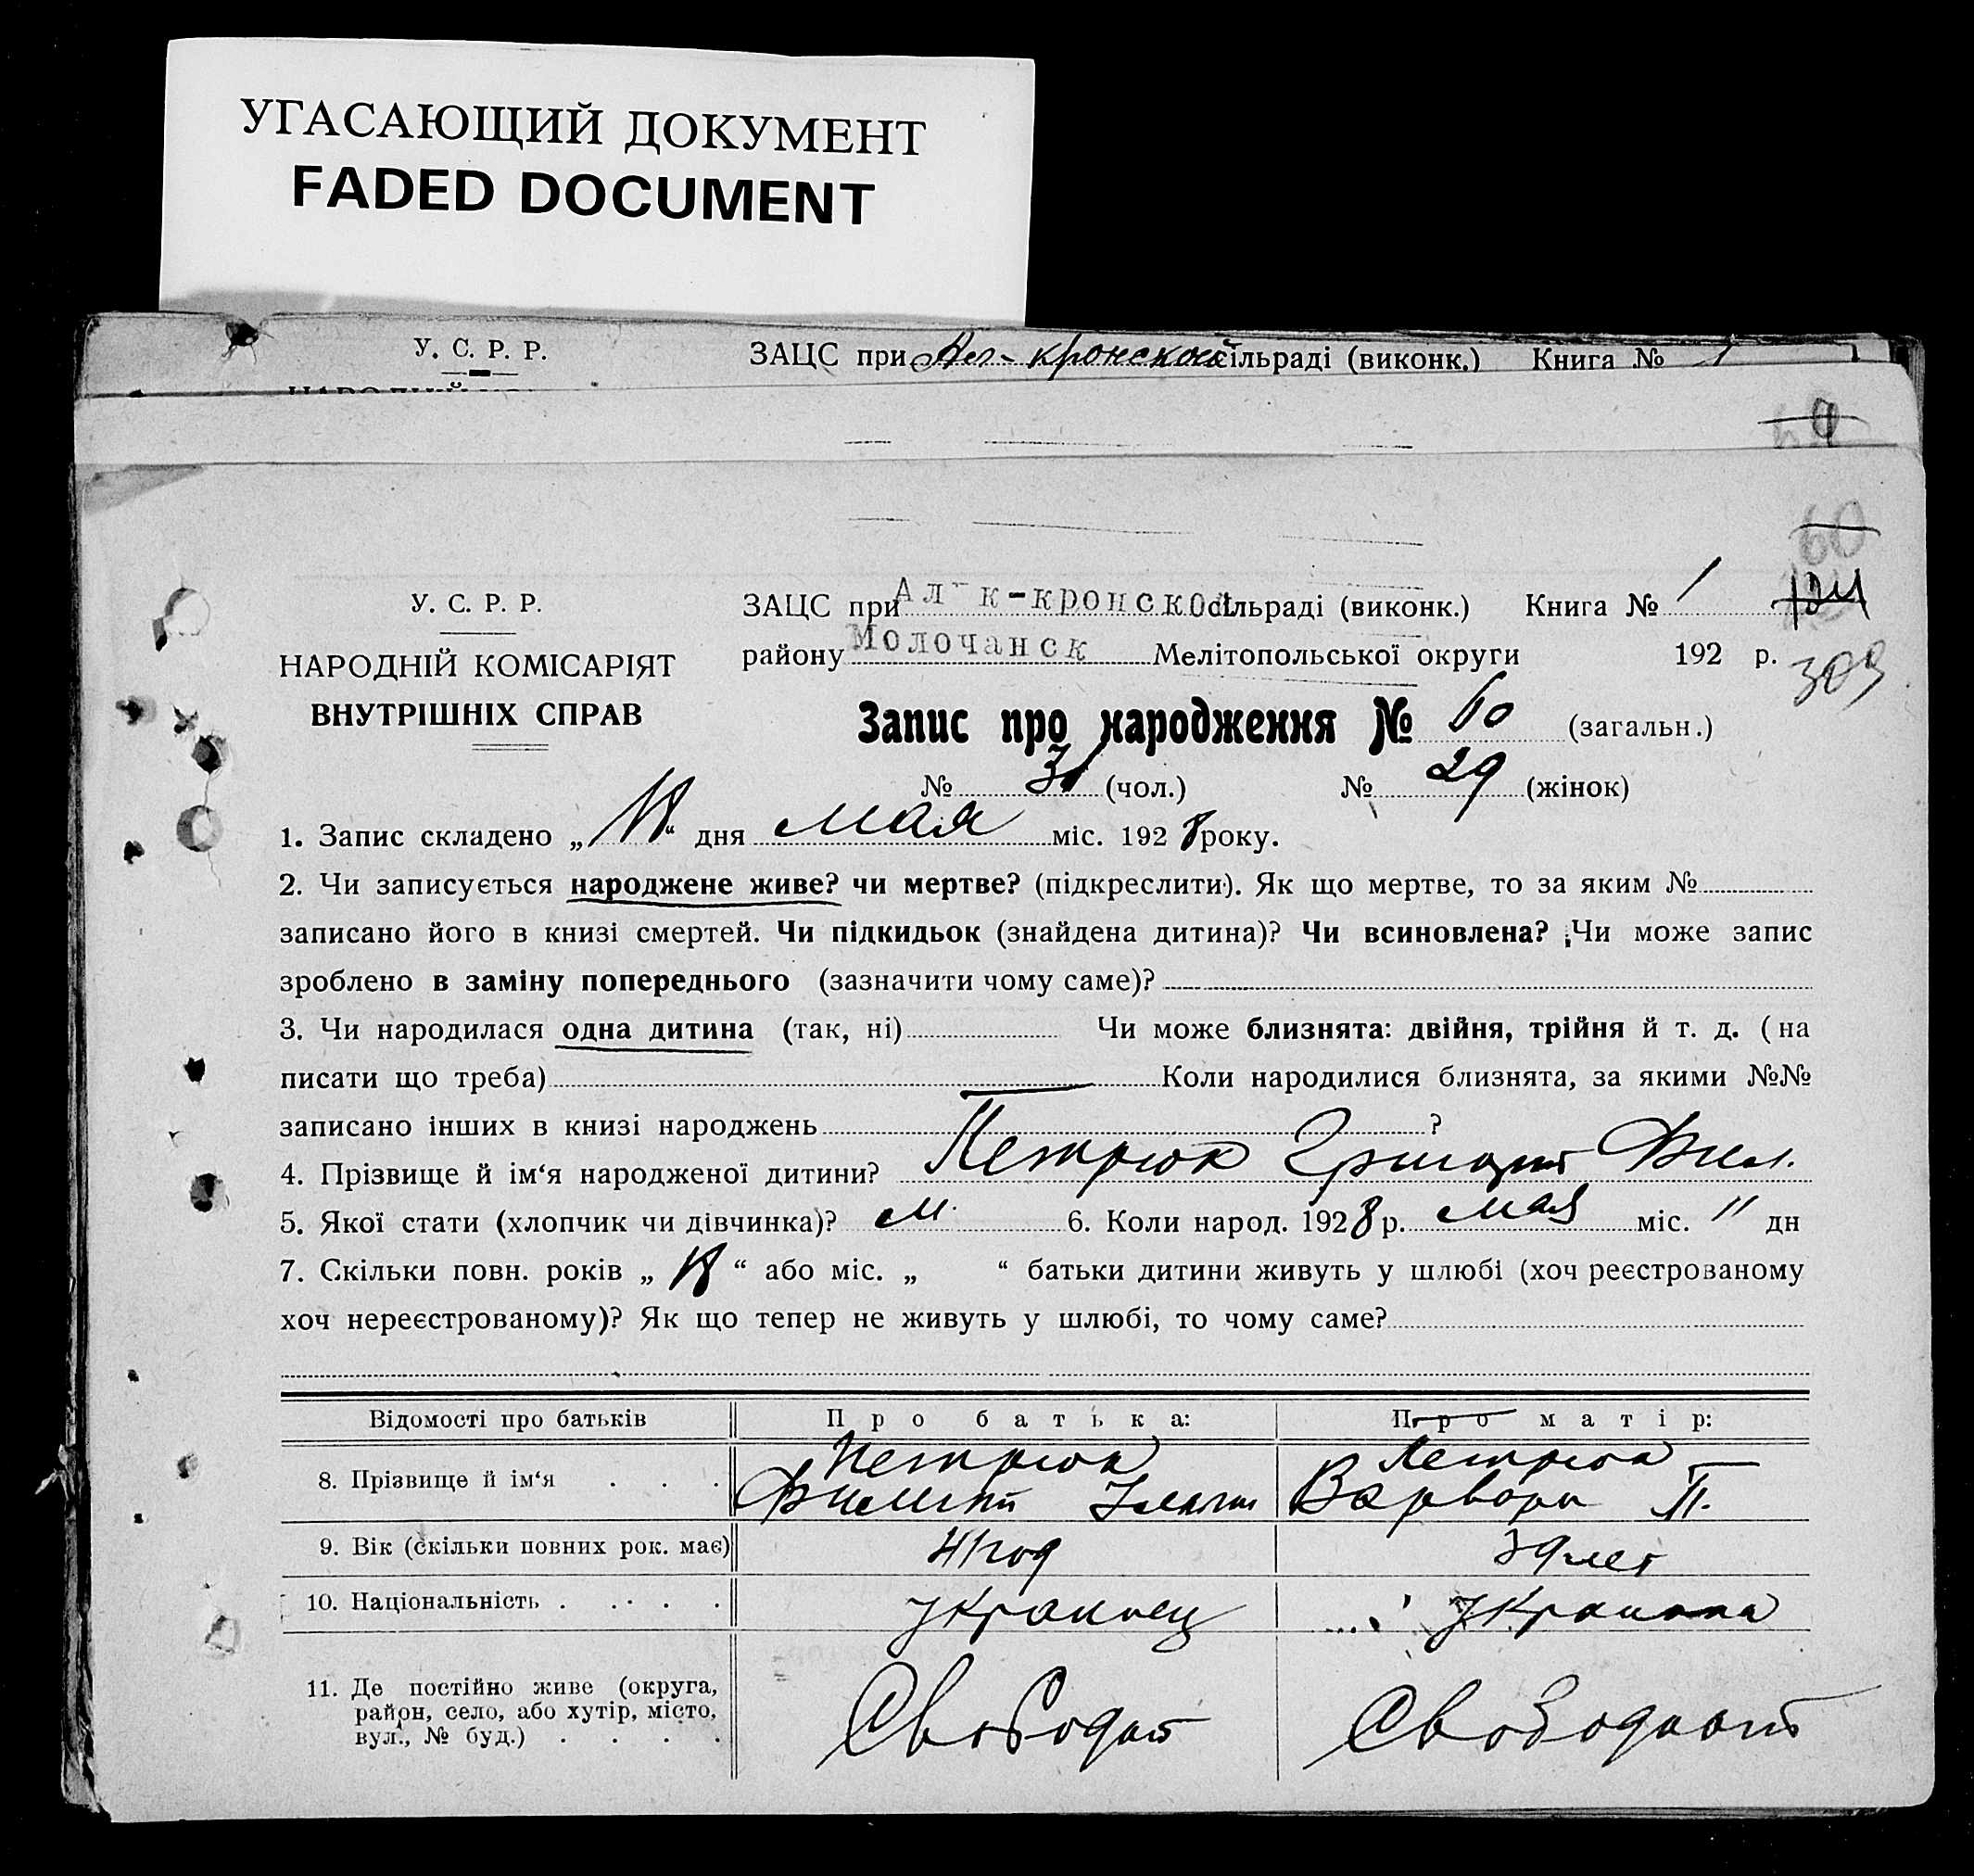 УГАСАЮЩИЙ ДОКУМЕНТ
FADED DOCUMENT
У. С. Р. Р. ЗАЦС при Ал-кронской сільраді (виконк.) Книга № 1
60
У. С. Р. Р. ЗАЦС при Ал-к-кронской сільраді (виконк.) Книга № 1
НАРОДНІЙ КОМІСАРІЯТ району Молочанск Мелітопольської округи 192 р. 303
ВНУТРІШНІХ СПРАВ Запис про народження № 60 (загальн.)
№ 31 (чол.) № 29 (жінок)
1. Запис складено „ “ дня мая міс. 1928 року.
2. Чи записується народжене живе? чи мертве? (підкреслити). Як що мертве, то за яким №
записано його в книзі смертей. Чи підкидьок (знайдена дитина)? Чи всиновлена? Чи може запис
зроблено в заміну попереднього (зазначити чому саме)?
3. Чи народилася одна дитина (так, ні) Чи може близнята: двійня, трійня й т. д. (на
писати що треба) Коли народилися близнята, за якими №№
записано інших в книзі народжень ?
4. Прізвище й ім‘я народженої дитини? Петрюк Григорий Фил.
5. Якої стати (хлопчик чи дівчинка)? м. 6. Коли народ. 1928 р. мая міс. 11 дн
7. Скільки повн. років „ “ або міс. „ “ батьки дитини живуть у шлюбі (хоч реєстрованому
хоч нереєстрованому)? Як що тепер не живуть у шлюбі, то чому саме?
Відомості про батьків Про батька: Про матір:
8. Прізвище й ім‘я . . . Петрюк Петрюк
Филипп Варвара П.
9. Вік (скільки повних рок. має) 41 год 39 лет
10. Національність . . . . . Украинец Украинка
11. Де постійно живе (округа,
район, село, або хутір, місто,
вул., № буд.) . . . .